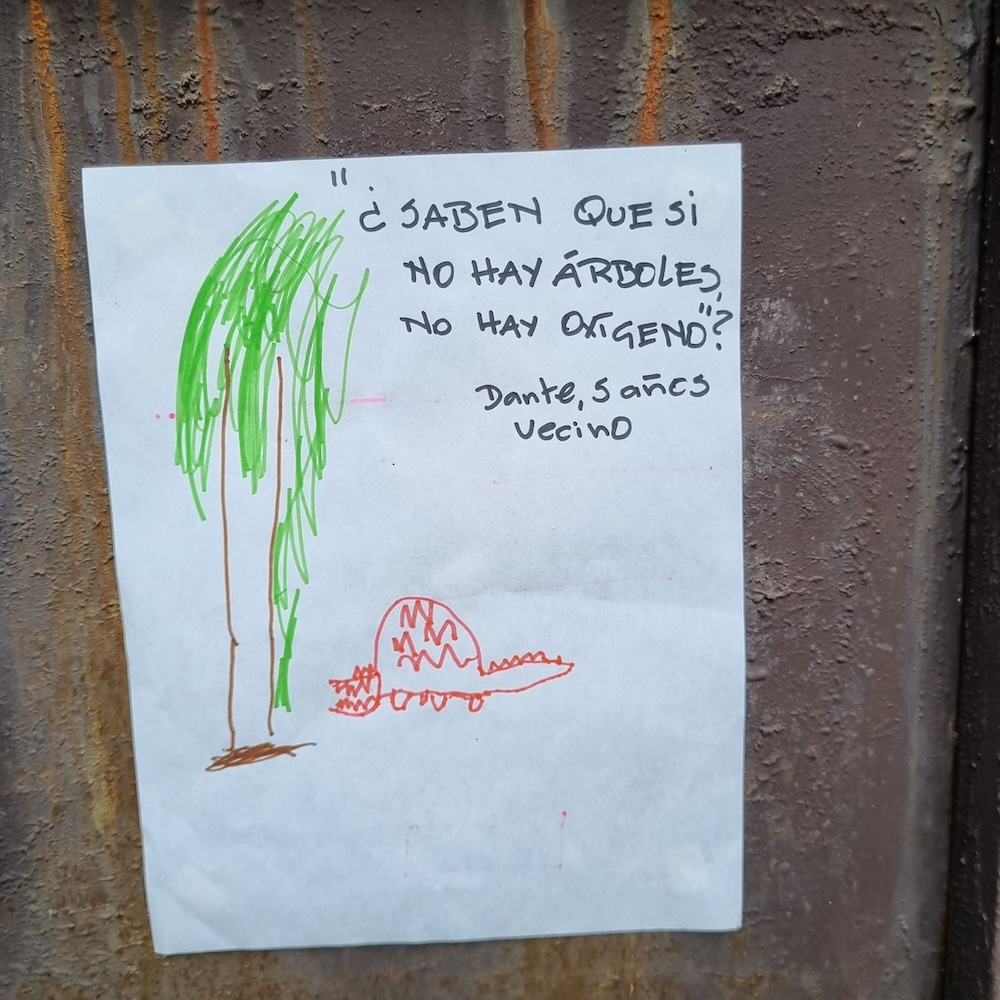 "¿SABEN QUE SI
NO HAY ÁRBOLES,
NO HAY OXÍGENO"?
Dante, 5 años
vecino